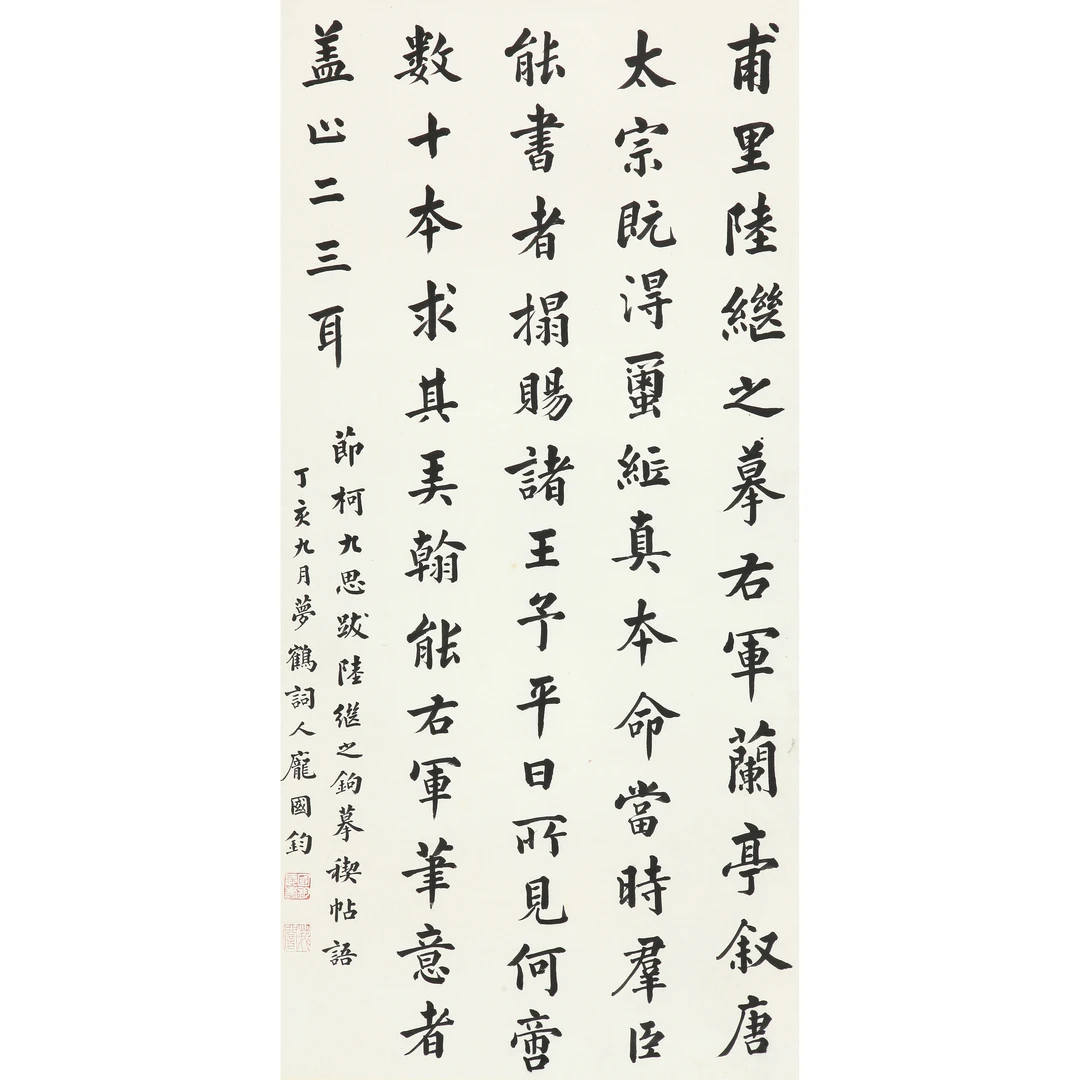 甫里陸繼之摹右軍蘭亭叙唐
太宗既淂蠒紙真本命當時羣臣
能書者搨賜諸王予平日所見何啻
數十本求其美翰能右軍筆意者
盖止二三耳
節柯九思跋陸继之鉤摹禊帖語
丁亥九月夢鶴詞人龐國鈞